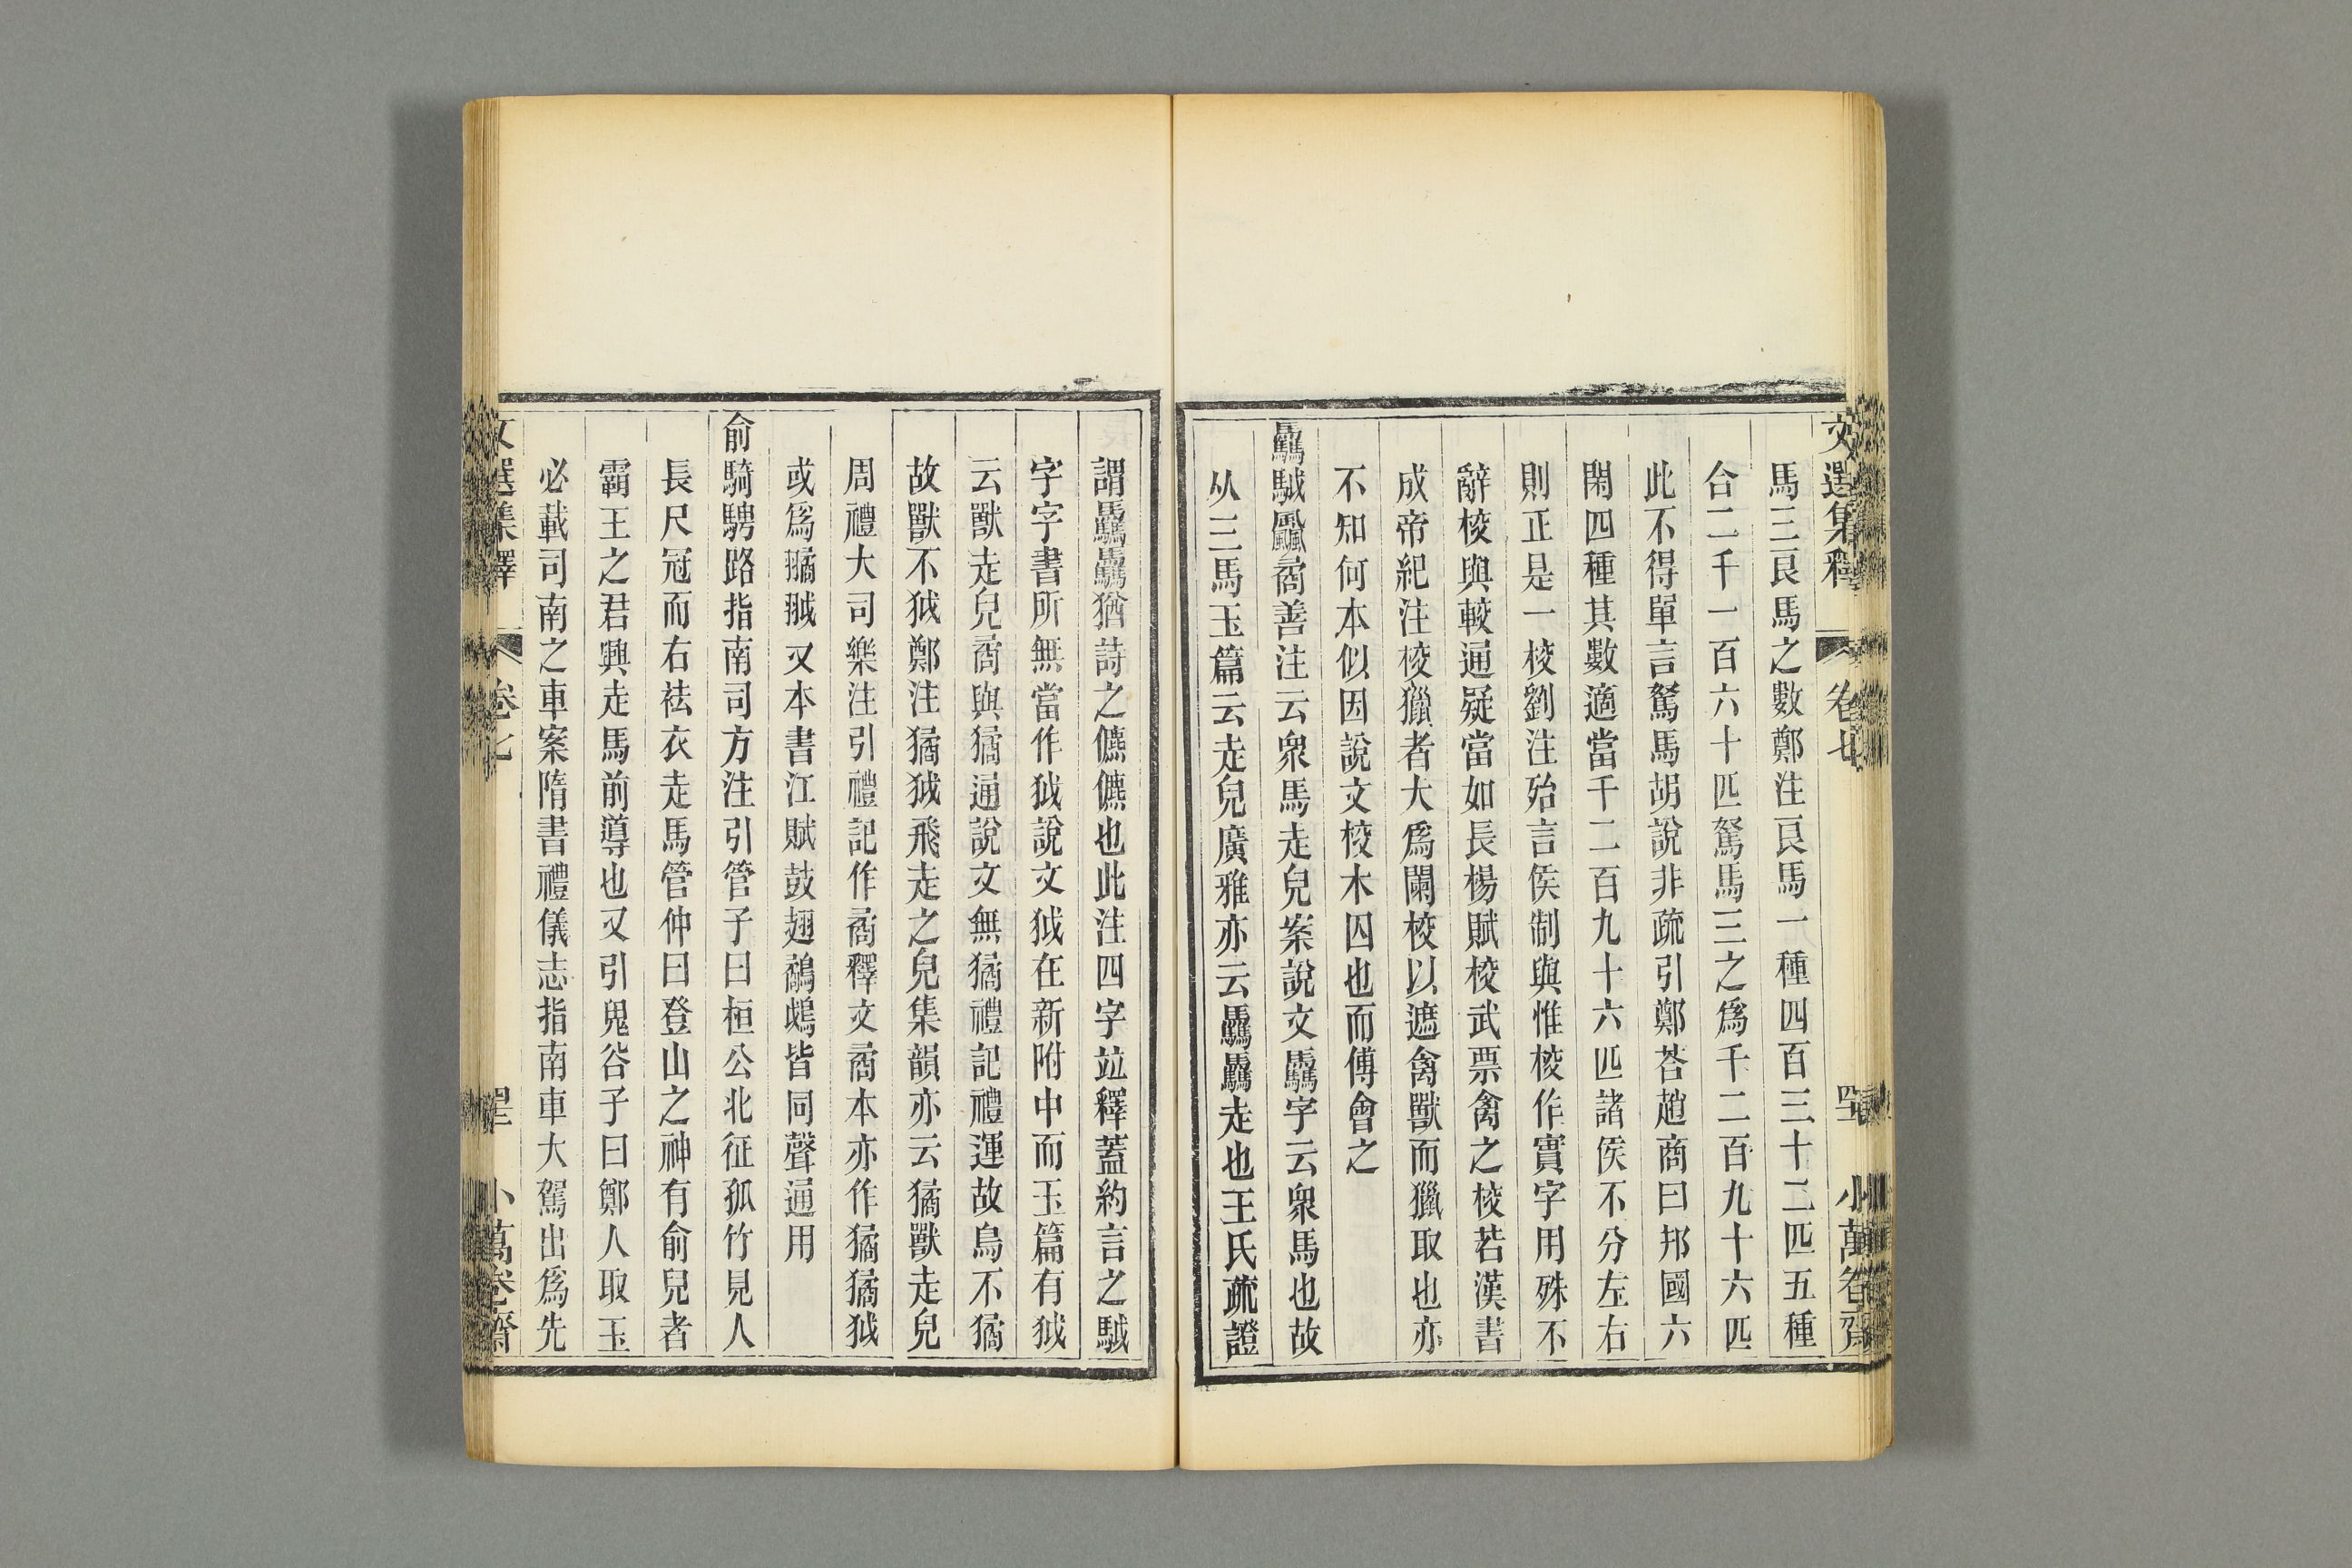 文選集釋 卷七 小萬卷齋
馬三良馬之數鄭注良馬一種四百三十二匹五種
合二千一百六十匹駑馬三之爲千二百九十六匹
此不得單言駑馬胡說非疏引鄭荅趙商曰邦國六
閑四種其數適當千二百九十六匹諸侯不分左右
則正是一棱劉注殆言侯制與惟棱作實字用殊不
辭棱與較通疑當如長楊賦校武票禽之棱若漢書
成帝紀注校獵者大爲闌校以遮禽獸而獵取也亦
不知何本似因說文校木囚也而傅會之
驫䮜飍矞善注云衆馬走皃案說文驫字云衆馬也故
从三馬玉篇云走皃廣雅亦云驫驫走也王氏疏證
謂驫驫猶詩之儦儦也此注四字竝釋蓋約言之䮜
字字書所無當作狘說文狘在新附中而玉篇有狘
云獸走皃矞與獝通說文無獝禮記禮運故鳥不獝
故獸不狘鄭注獝狘飛走之皃集韻亦云獝獸走皃
周禮大司樂注引禮記作矞釋文矞本亦作獝獝狘
或爲𦒑𦐍又本書江賦鼓翅䎀䎉皆同聲通用
俞騎騁路指南司方注引管子曰桓公北征孤竹見人
長尺冠而右祛衣走馬管仲曰登山之神有俞兒者
霸王之君興走馬前導也又引鬼谷子曰鄭人取玉
必載司南之車案隋書禮儀志指南車大駕出爲先
文選集釋 卷七 小萬卷齋